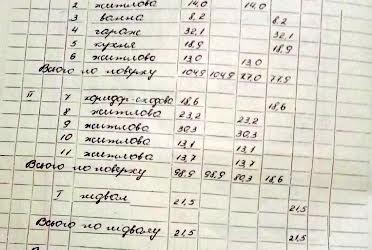 2 житлова 14,0 14,0
3 ванна 8,2 8,2
4 гараж 32,1 32,1
5 кухня 18,9 18,9
6 житлово 13,0 13,0
Всього по поверху 104,9 104,9 27,0 77,9
II 7 коридор-сходова 18,6 18,6
8 житлова 23,2 23,2
9 житлова 30,3 30,3
10 житлова 13,1 13,1
11 житлова 13,7 13,7
Всього по поверху 98,9 98,9 80,3 18,6
I підвал 21,5 21,5
Всього по підвалу 21,5 21,5